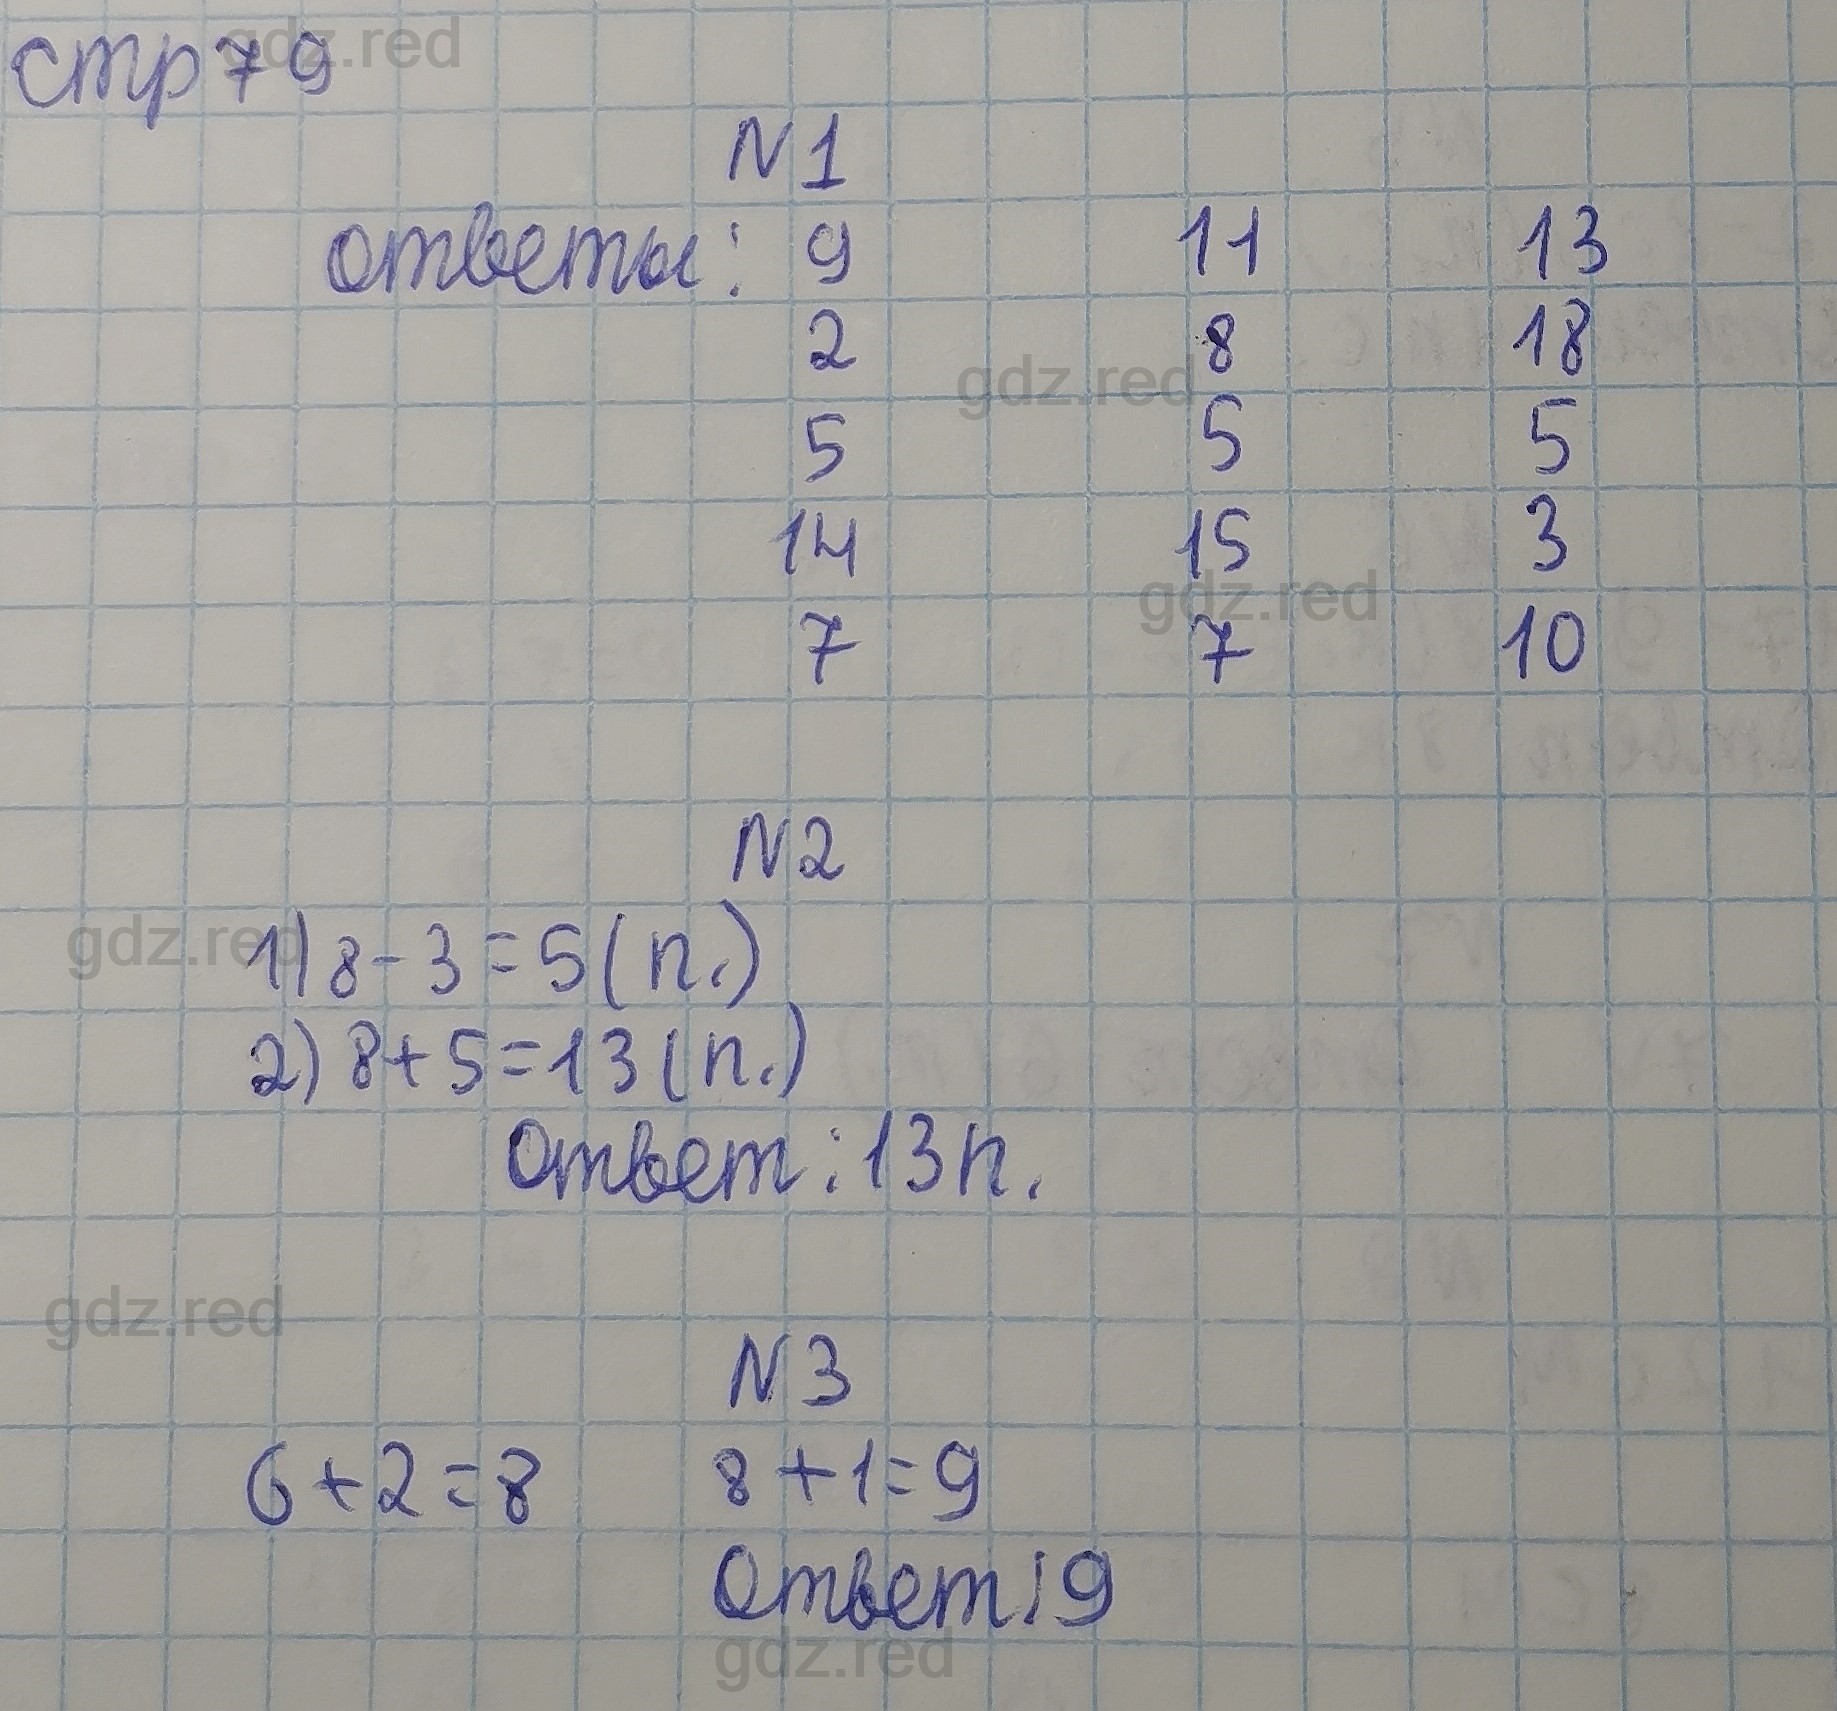 стр 79
gdz.red
N 1
ответы: 9 11 13
2 8 18
gdz.red
5 5 5
14 15 3
gdz.red
7 7 10
N 2
gdz.red
1) 8 - 3 = 5 (п.)
2) 8 + 5 = 13 (п.)
Ответ: 13 п.
gdz.red
N 3
6 + 2 = 8 8 + 1 = 9
Ответ: 9
gdz.red